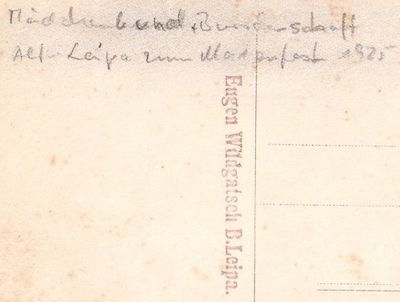 Mädchenbund u. Burschenschaft
Alt-Leipa zum Marienfest 1925
Eugen Wildgatsch B. Leipa.